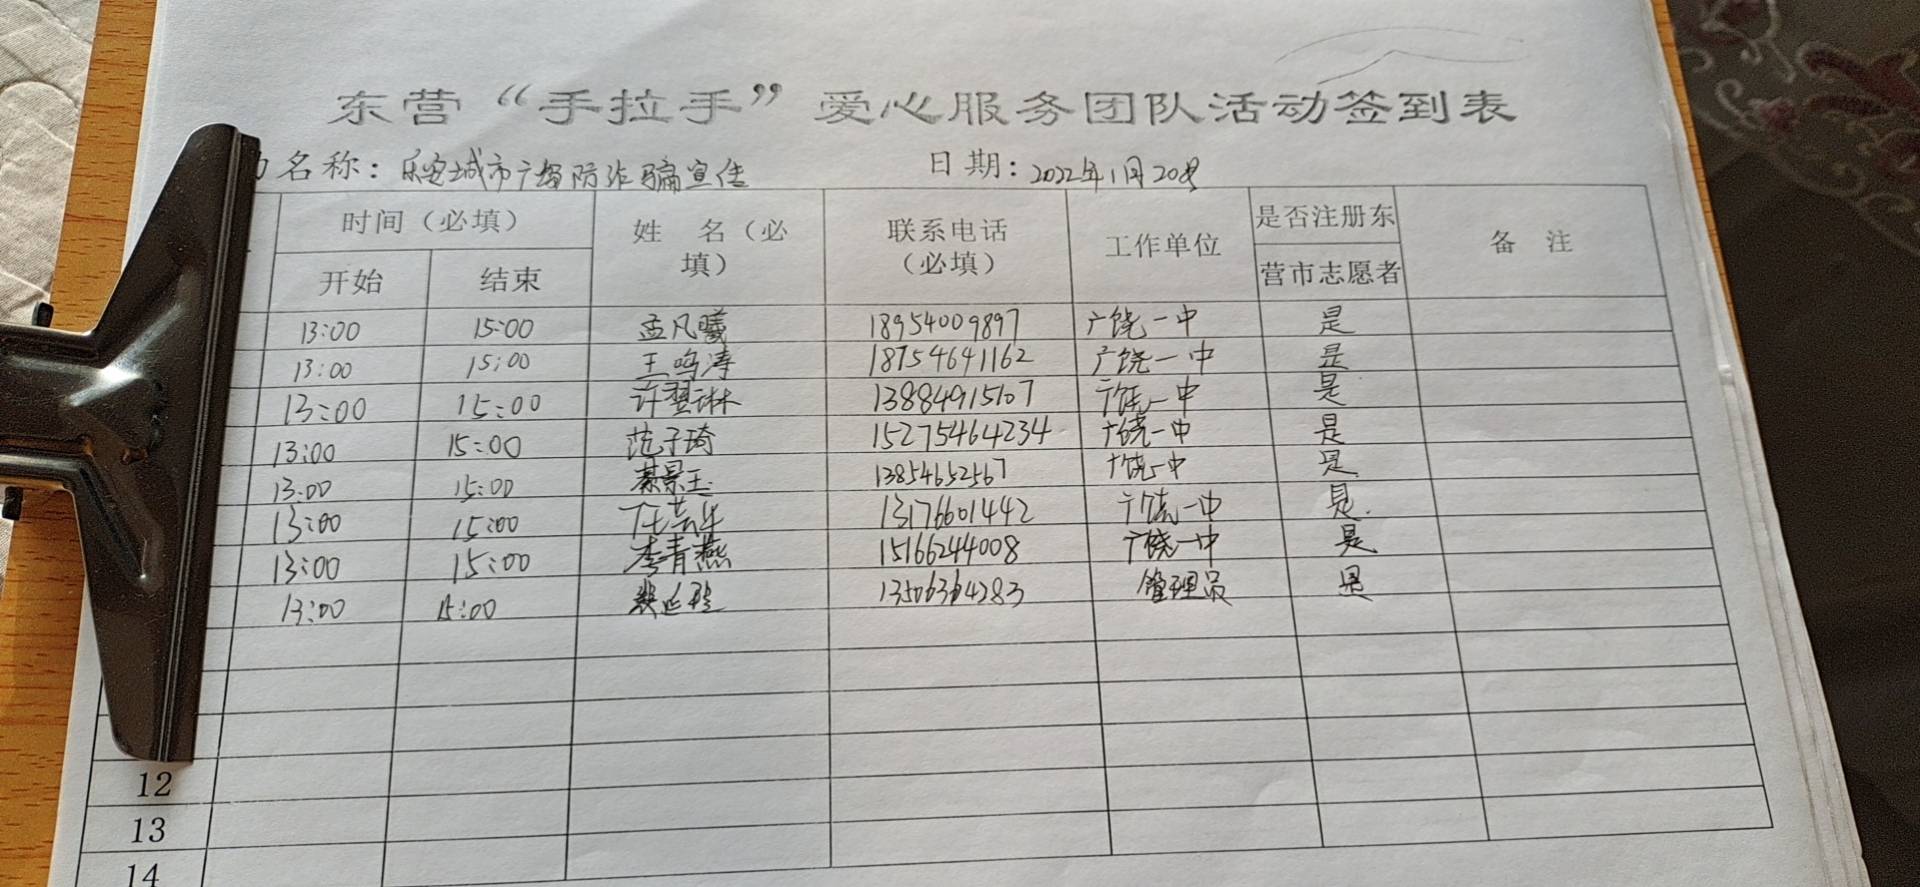 东营“手拉手”爱心服务团队活动签到表
名称：乐安城市广场防诈骗宣传 日期：2022年1月20号
时间（必填） 姓 名（必填） 联系电话（必填） 工作单位 是否注册东营市志愿者 备 注
开始 结束
13:00 15:00 孟凡曦 18954009897 广饶一中 是
13:00 15:00 王鸣涛 18754641162 广饶一中 是
13:00 15:00 许翌琳 13884915107 广饶一中 是
13:00 15:00 范子琦 15275464234 广饶一中 是
13:00 15:00 綦景玉 13854652567 广饶一中 是
13:00 15:00 任芸华 13176601442 广饶一中 是
13:00 15:00 李青燕 15166244008 广饶一中 是
13:00 15:00 13506364283 管理员 是
12
13
14